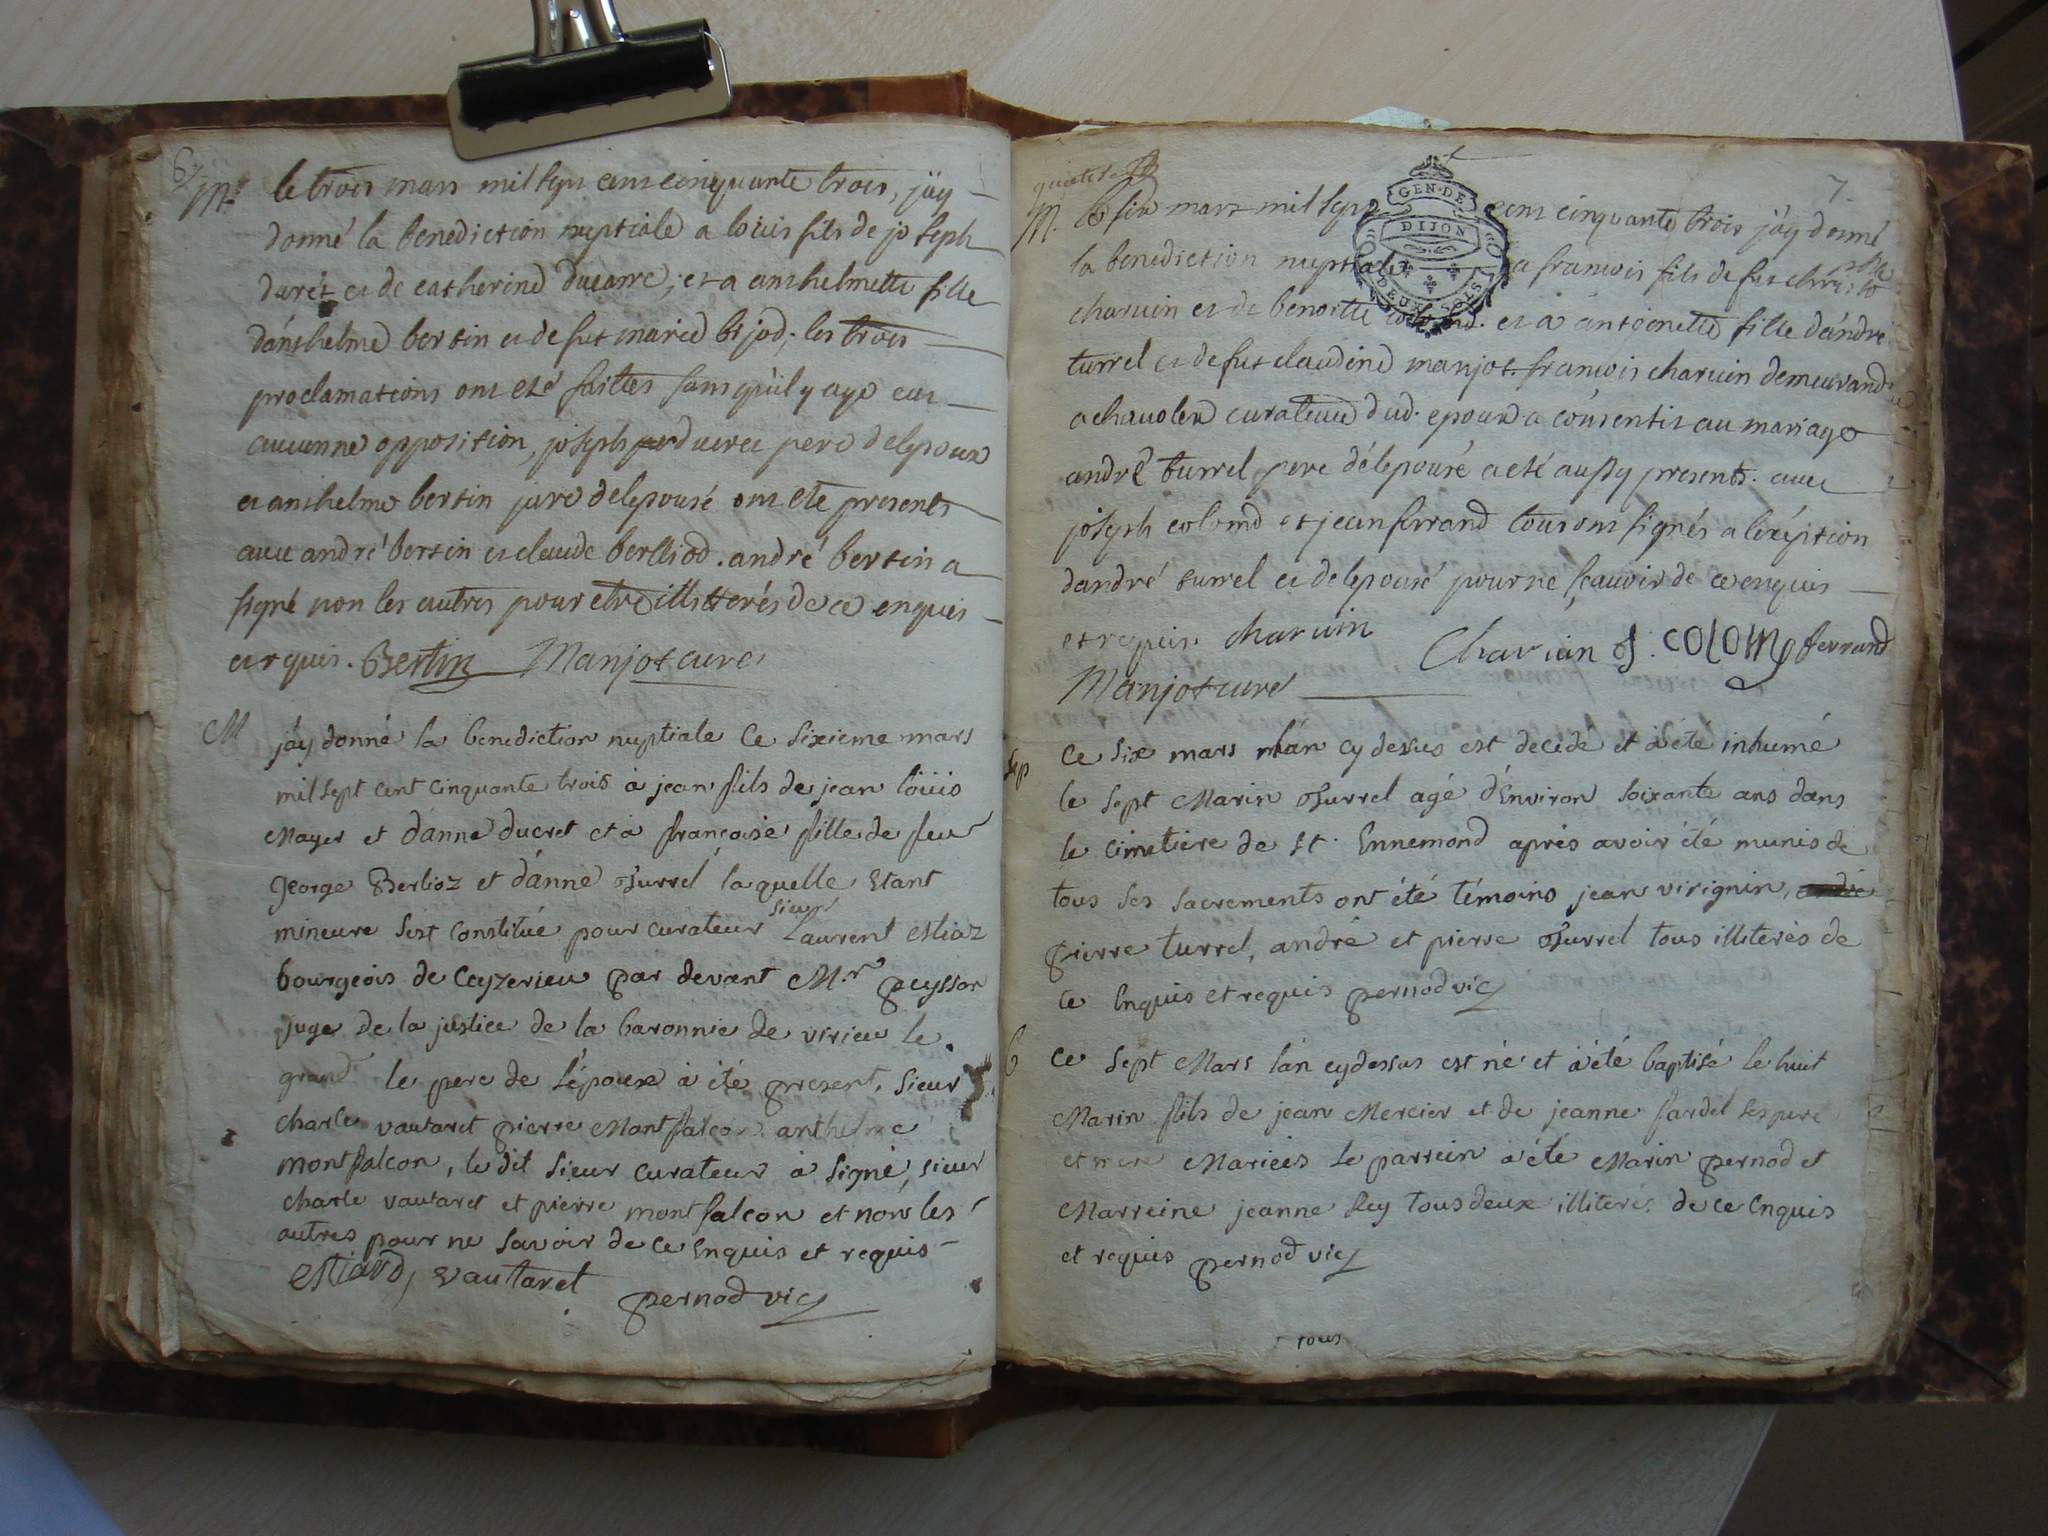 6
M. le trois mars mil sept cens cinquante trois, j'ay
donné la benediction nuptiale a loüis fils de joseph
durét et de catherine ducarre; et a anthelmette fille
d'anthelme bertin et de fut marie bijod; les trois
proclamations ont eté faittes sans qu'il y aye eut
aucunne opposition, joseph pere de lepoux
et anthelme bertin pere de lepousé ont ete presents
avec andré bertin et claude berlliod. andré bertin a
signé non les autres pour etre illitterés de ce enquis
et requis. Bertin Manjot curé
M j'ay donné la benediction nuptiale ce sixieme mars
mil sept cent cinquante trois à jean fils de jean loüis
Mayer et d'anne ducret et à françoise fille de feu
george Berlioz et d'anne Turrel laquelle étant
mineure s'est constitué pour curateur sieur Laurent estiaz
bourgeois de Ceyzerieu par devant M.r peysson
juge de la justice de la baronnie de virieu le
grand le pere de l'époux à été present, sieur
charle vautaret pierre Montfalcon anthelme
montfalcon, le dit sieur curateur à signé, sieur
charle vautaret et pierre montfalcon et non les
autres pour ne savoir de ce enquis et requis
estiard, vautaret
pernod vic
7
M. le six mars mil sept cens cinquante trois j'ay donné
GEN. DE
DIJON
DEUX SOLS
la benediction nuptiale a francois fils de fut christophe
charvin et de benoitte colomd. et a antoinette fille d'andré
turrel et de fut claudine manjot. francois charvin demeurand
a chavolex curateur dud. epoux a consentit au mariage
andrè turrel pere de lepousé a eté aussy present. avec
joseph colomd et jean ferrand tous ont signés a l'exeption
d'andré turrel et de lepousé pour ne sçavoir de ce enquis
et requis. charvin Charvin J. COLOM ferrand
Manjot curé
sep ce six mars l'an cy dessus est decedé et à été inhumé
le sept Marin Turrel agé d'Environ soixante ans dans
le cimetiere de St. Ennemond aprés avoir été munis de
tous ses sacrements ont été témoins jean virignin,
pierre turrel, andré et pierre Turrel tous illiterés de
ce Enquis et requis pernod vic
b ce sept Mars l'an cydessus est né et à été baptisé le huit
Marin fils de jean Mercier et de jeanne fardel ses pere
et mere Mariés le parrein à été Marin pernod et
Marreine jeanne Rey tous deux illiterés de ce Enquis
et requis pernod vic
tous